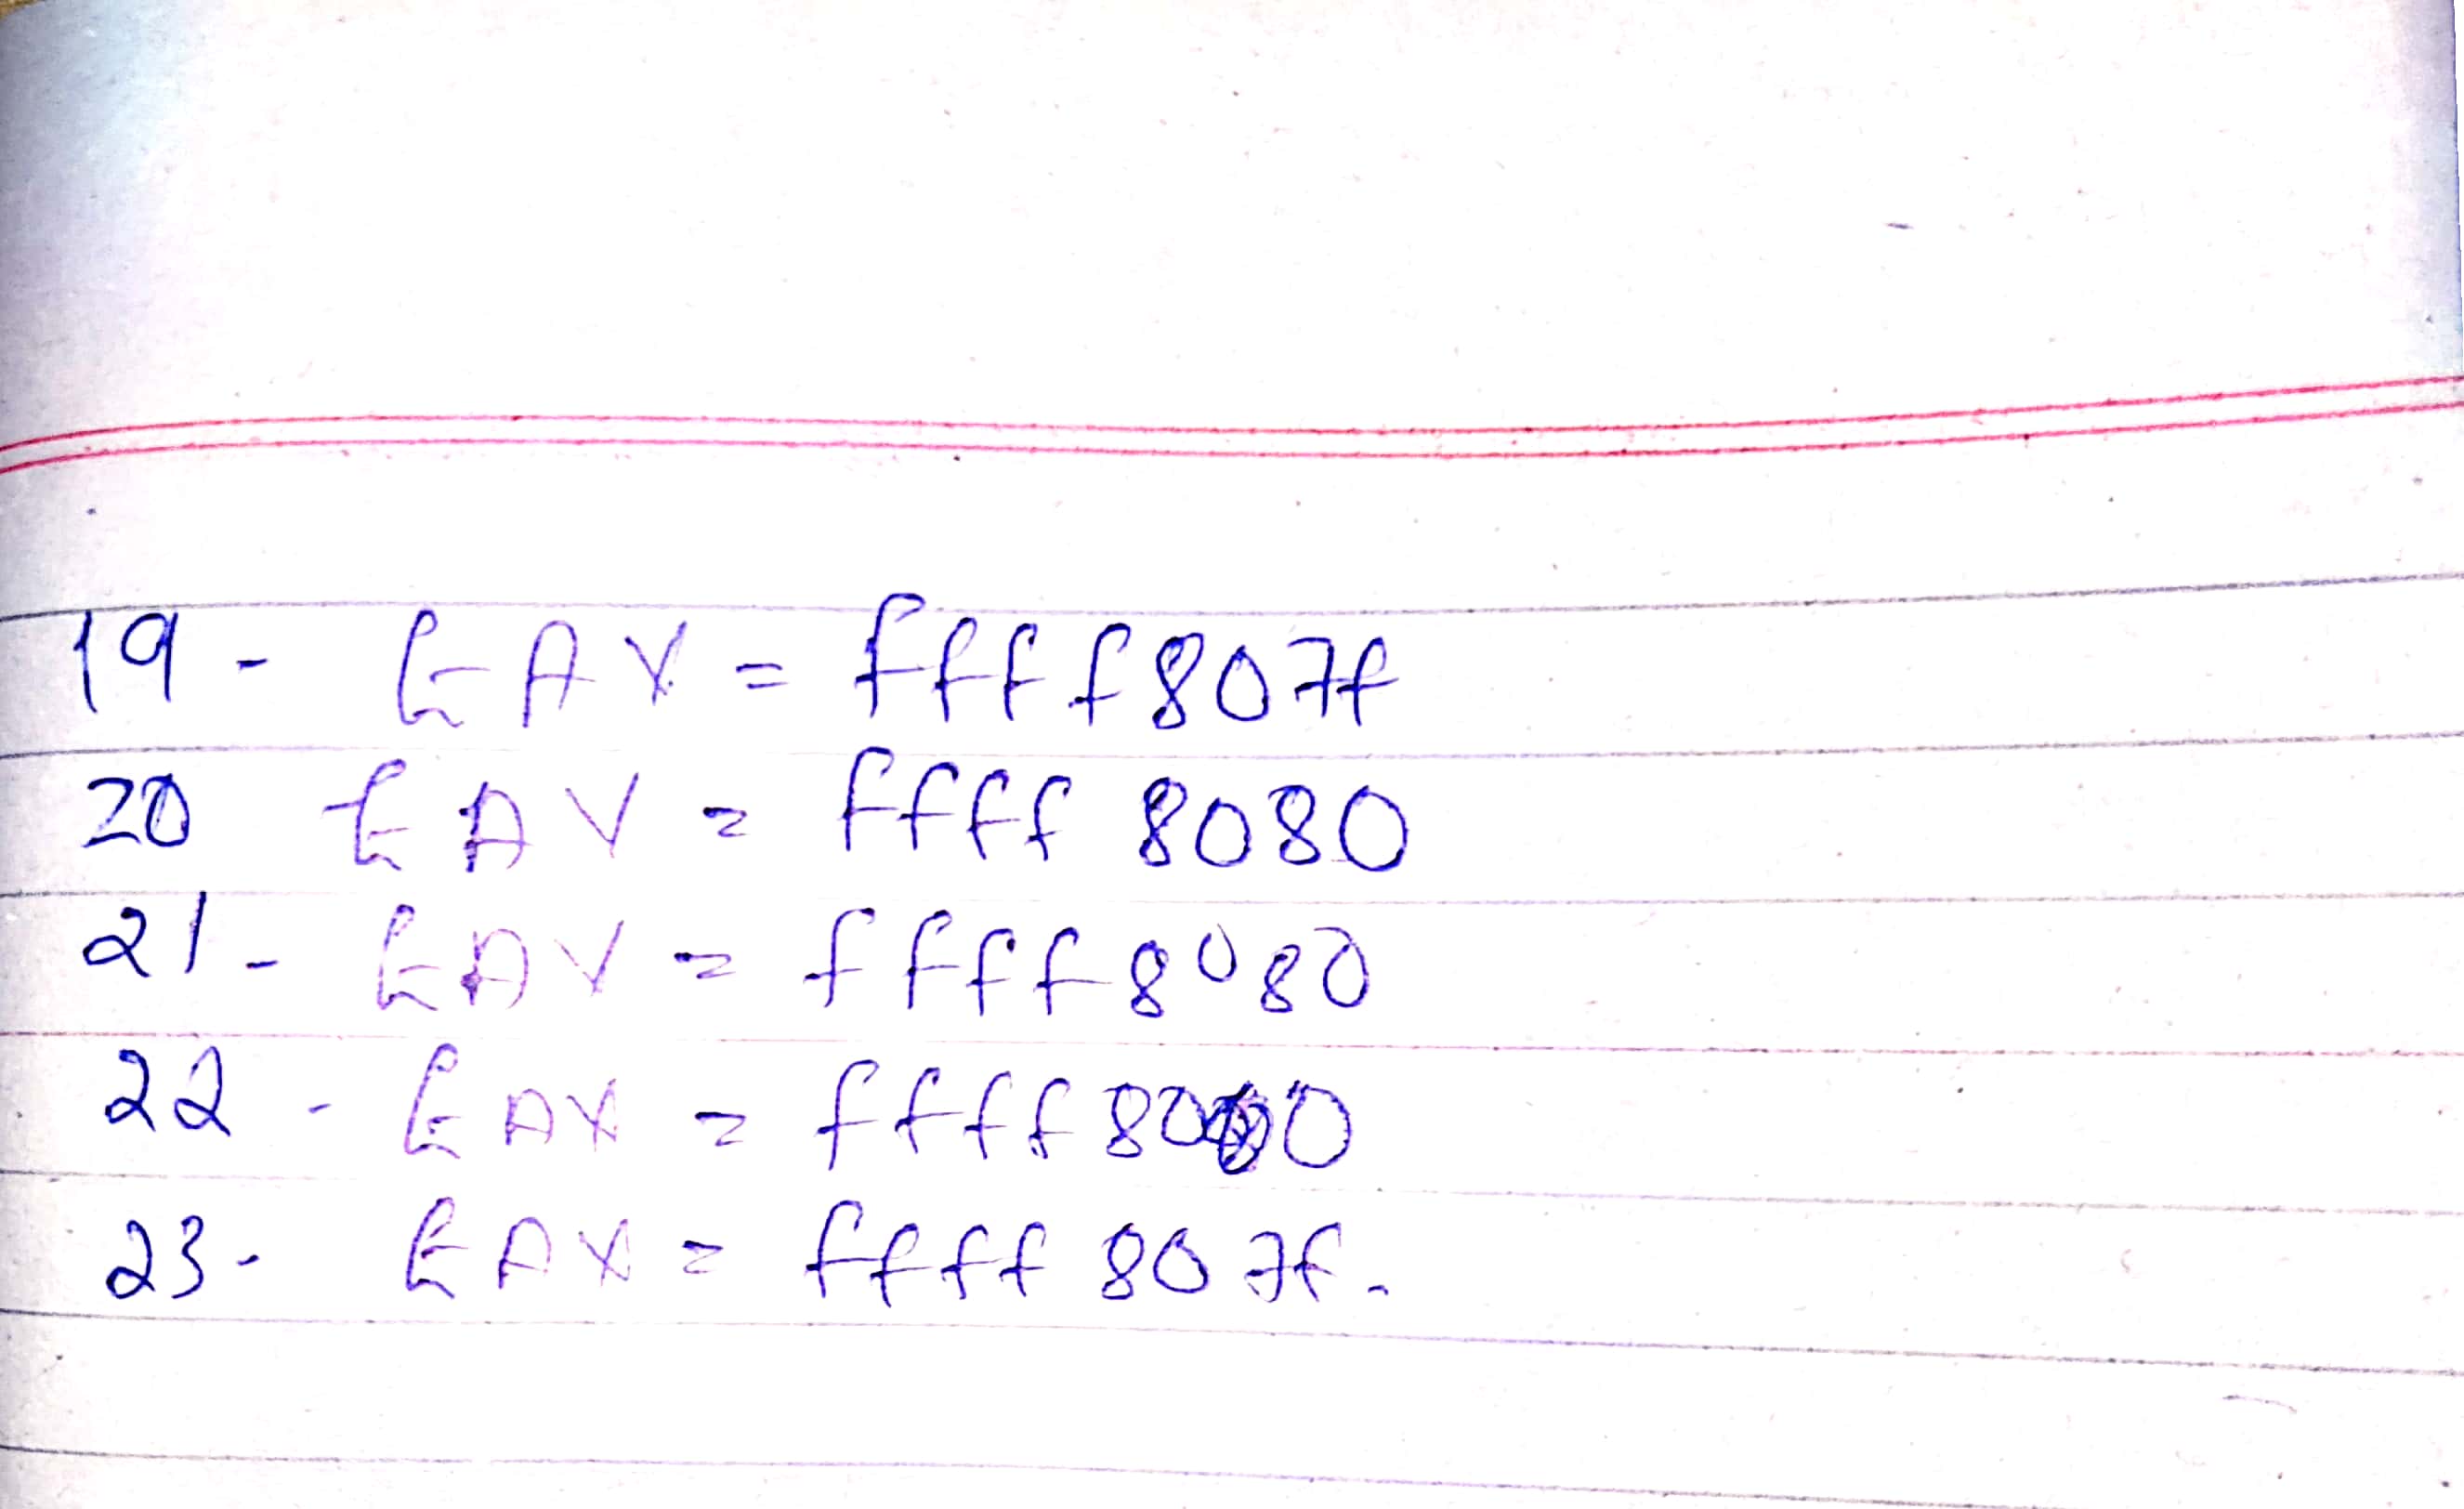 19- EAX = ffff807f
20 EAX = ffff 8080
21- EAX = ffff8080
22- EAX = ffff8000
23- EAX = ffff 807f.